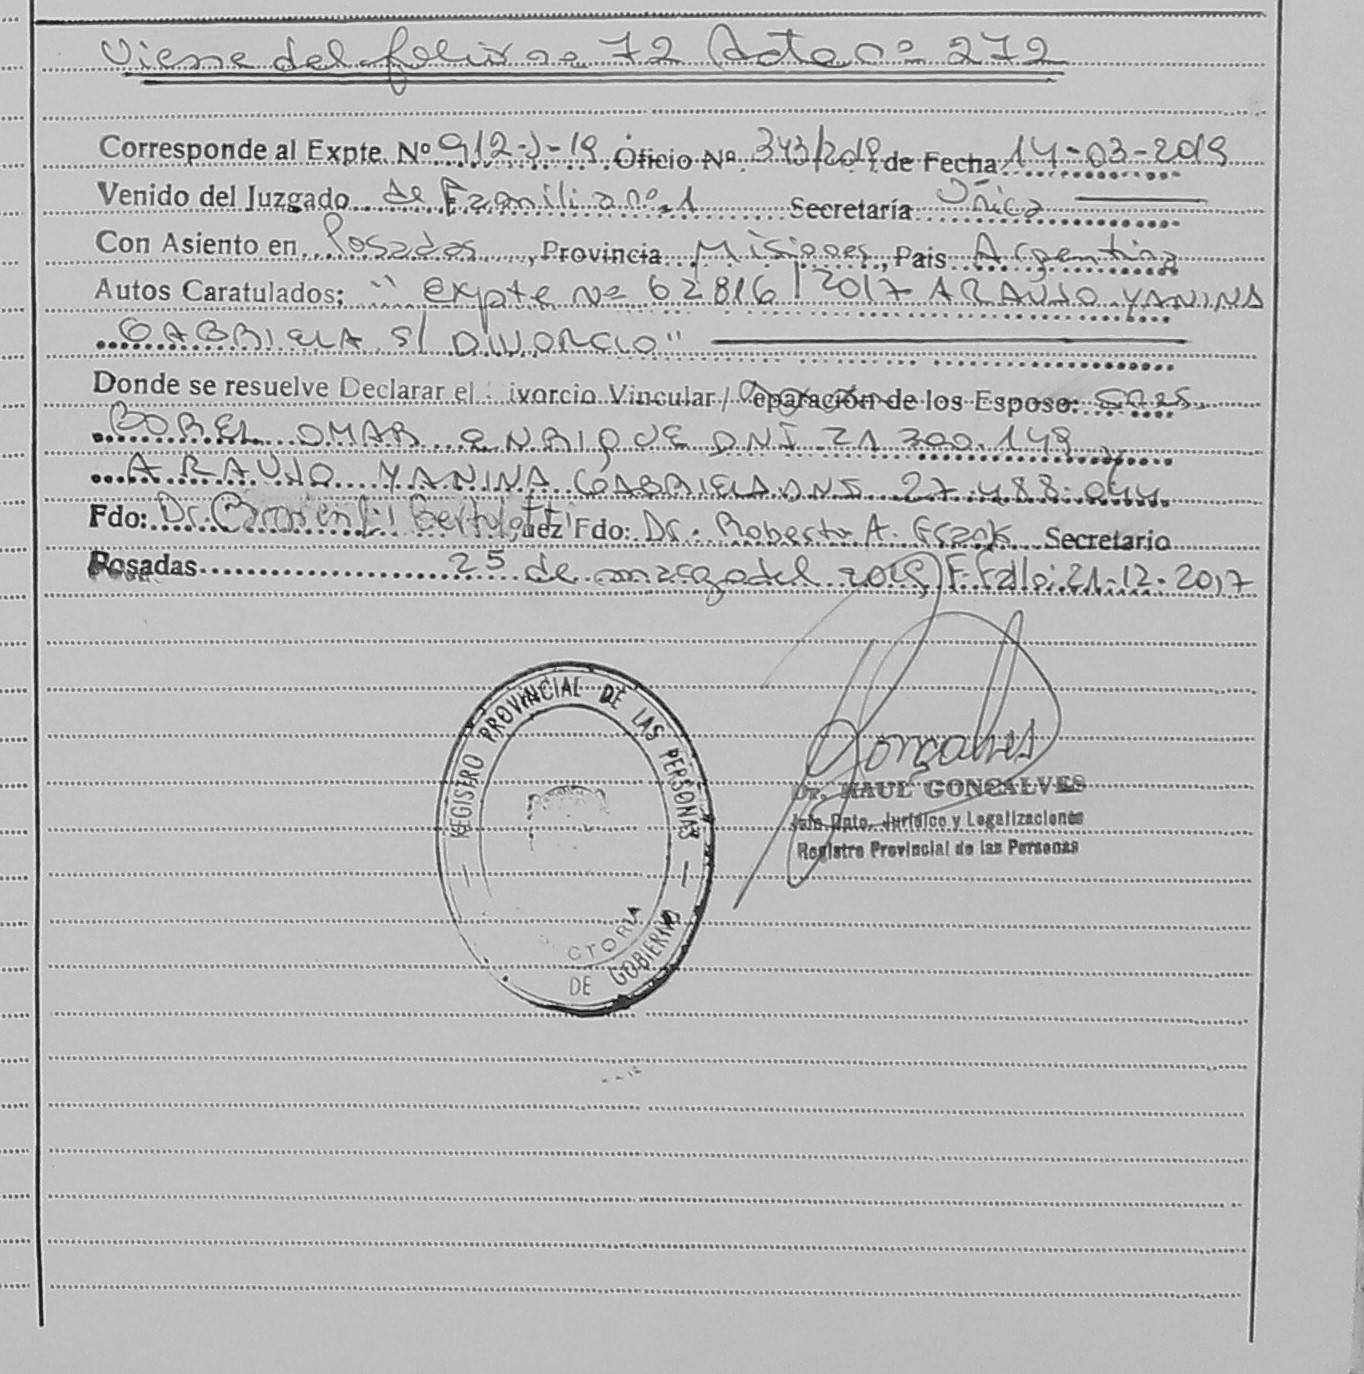 Viene del folio nº 72 Acta nº 272
Corresponde al Expte. Nº 912-J-19 Oficio Nº 343/2019 de Fecha 14-03-2019
Venido del Juzgado de Familia nº 1 Secretaría Única
Con Asiento en Posadas, Provincia Misiones, Pais Argentina
Autos Caratulados: "Expte Nº 62816/2017 ARAUJO YANINA
GABRIELA S/ DIVORCIO"
Donde se resuelve Declarar el ivorcio Vincular / Separación de los Esposo: Sres.
BOREL OMAR ENRIQUE DNI 21.300.149 y
ARAUJO YANINA GABRIELA DNI 27.488.044.
Fdo: Dr. Bertolotti Juez Fdo: Dr. Roberto A. Secretario
Posadas 25 de marzo del 2019 F. Fallo: 21-12-2017
REGISTRO PROVINCIAL DE LAS PERSONAS
CTORIA
DE GOBIERNO
Gonçalves
Dr. RAUL GONCALVES
Jefe Dpto. Jurídico y Legalizaciones
Registro Provincial de las Personas